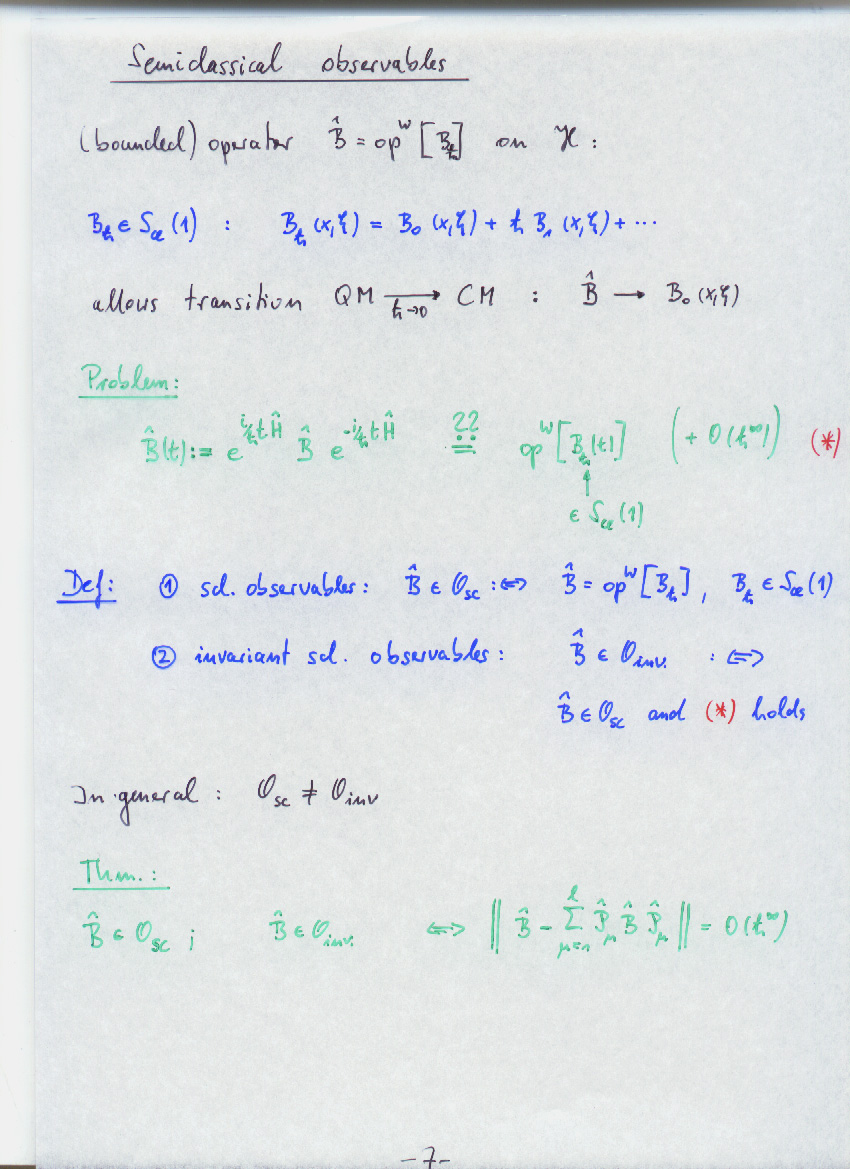 Semiclassical observables
(bounded) operator B̂ = op^W [B_ħ] on ℋ :
B_ħ ∈ S_cl (1) : B_ħ (x,ξ) = B_0 (x,ξ) + ħ B_1 (x,ξ) + ⋯
allows transition QM ⟶_{ħ→0} CM : B̂ → B_0 (x,ξ)
Problem:
B̂(t) := e^{i/ħ t Ĥ} B̂ e^{-i/ħ t Ĥ} =^{??} op^W [B_ħ(t)] (+ O(ħ^∞)) (*)
↑
∈ S_cl (1)
Def: ① scl. observables : B̂ ∈ 𝒪_sc :⇔ B̂ = op^W [B_ħ] , B_ħ ∈ S_cl (1)
② invariant scl. observables : B̂ ∈ 𝒪_inv. :⇔
B̂ ∈ 𝒪_sc and (*) holds
In general : 𝒪_sc ≠ 𝒪_inv
Thm.:
B̂ ∈ 𝒪_sc ; B̂ ∈ 𝒪_inv. ⇔ ‖ B̂ - Σ_{μ=1}^{l} P̂_μ B̂ P̂_μ ‖ = O(ħ^∞)
-7-